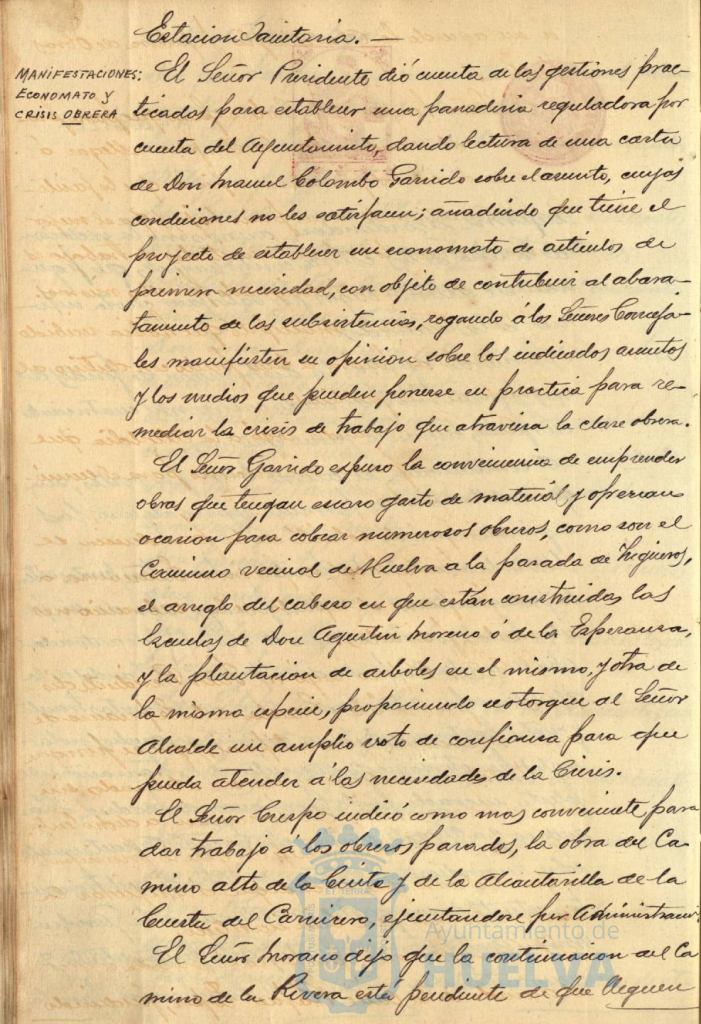 Estacion Sanitaria. —
MANIFESTACIONES:
ECONOMATO y
CRISIS OBRERA
El Señor Presidente dió cuenta de las gestiones prac-
ticadas para establecer una panaderia reguladora por
cuenta del Ayuntamiento, dando lectura de una carta
de Don Manuel Colombo Garrido sobre el asunto, cuyas
condiciones no les satisfacen; añadiendo que tiene el
proyecto de establecer un economato de articulos de
primera necesidad, con objeto de contribuir al abara-
tamiento de las subsistencias, rogando á los Señores Conceja-
les manifiesten su opinion sobre los indicados asuntos
y los medios que pueden ponerse en practica para re-
mediar la crisis de trabajo que atraviesa la clase obrera.
El Señor Garrido expuso la conveniencia de emprender
obras que tengan escaso gasto de material y ofrezcan
ocasion para colocar numerosos obreros, como son el
Camino vecinal de Huelva a la parada de Trigueros,
el arreglo del cabezo en que están construidas las
Escuelas de Don Agustin Moreno ó de la Esperanza,
y la plantacion de arboles en el mismo, y otra de
la misma especie, proponiendo se otorgue al Señor
Alcalde un amplio voto de confianza para que
pueda atender á las necesidades de la Crisis.
El Señor Crespo indicó como mas conveniente para
dar trabajo á los obreros parados, la obra del Ca-
mino alto de la Cinta y de la Alcantarilla de la
Cuesta del Carnicero, ejecutandose por Administracion.
El Señor Morano dijo que la continuacion del Ca
mino de la Rivera está pendiente de que
Ayuntamiento de
HUELVA